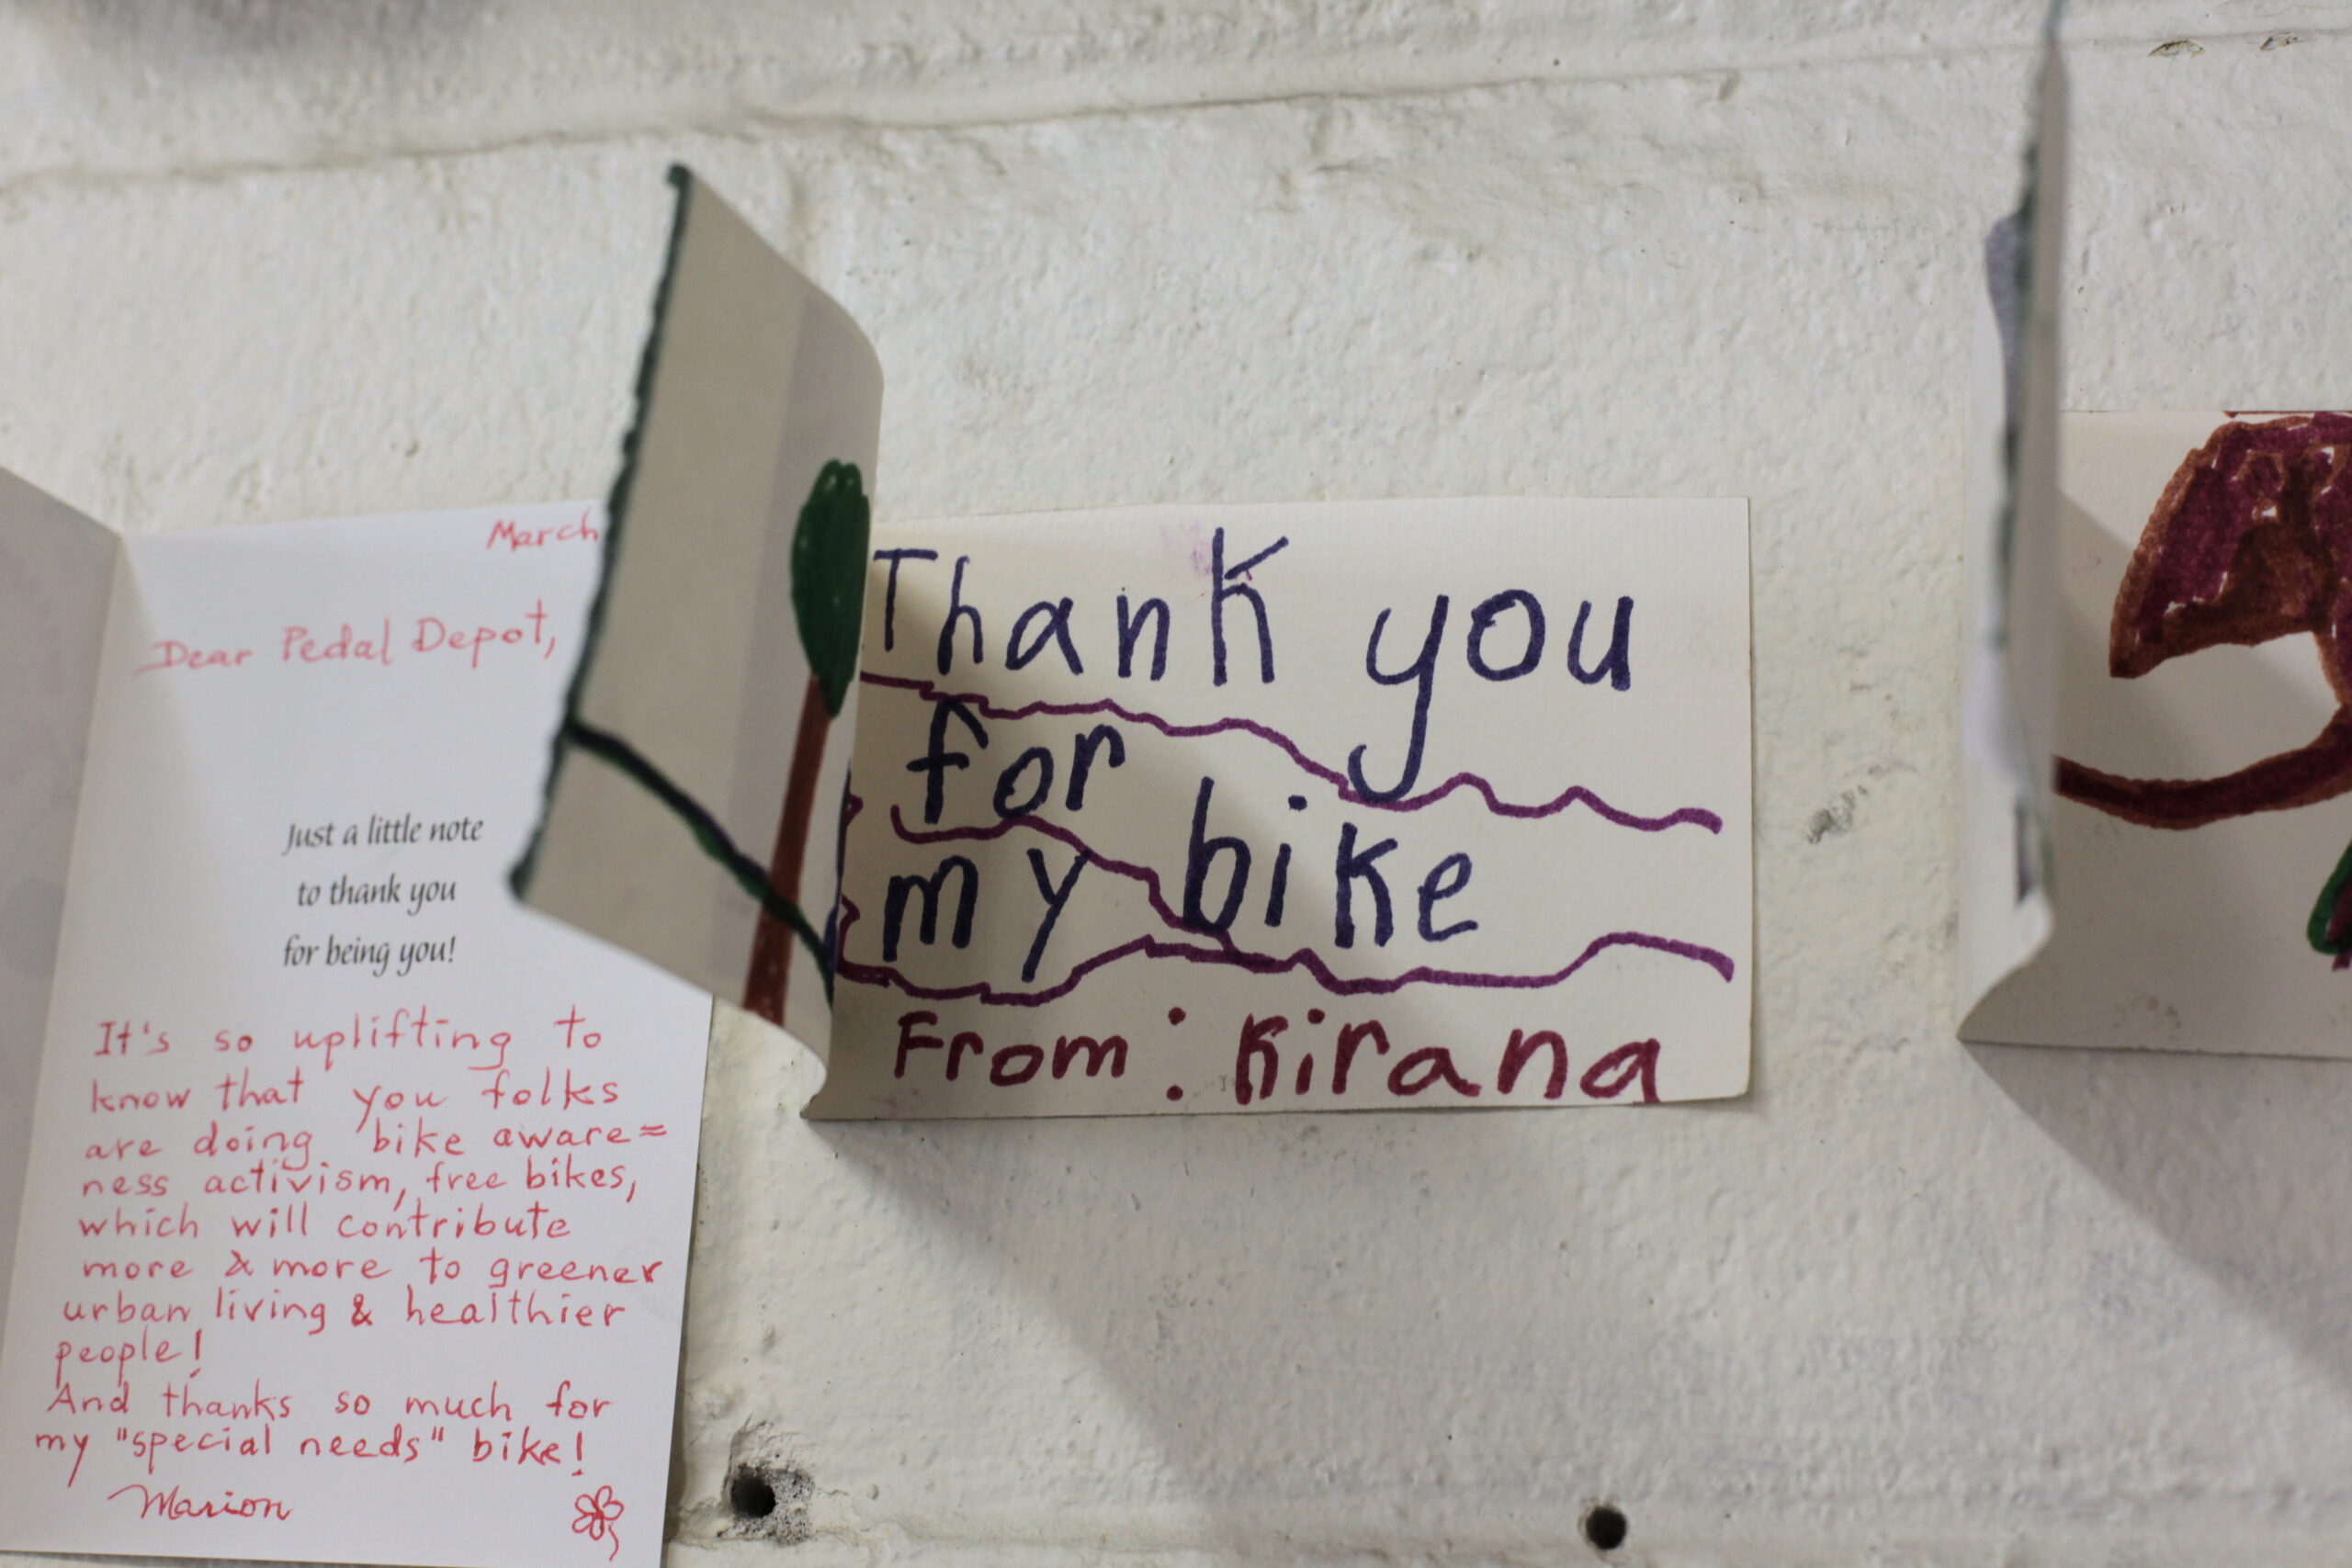 March
Dear Pedal Depot,
Just a little note
to thank you
for being you!
It's so uplifting to
know that you folks
are doing bike aware=
ness activism, free bikes,
which will contribute
more & more to greener
urban living & healthier
people!
And thanks so much for
my "special needs" bike!
Marion
Thank you
for
my bike
From: Kirana